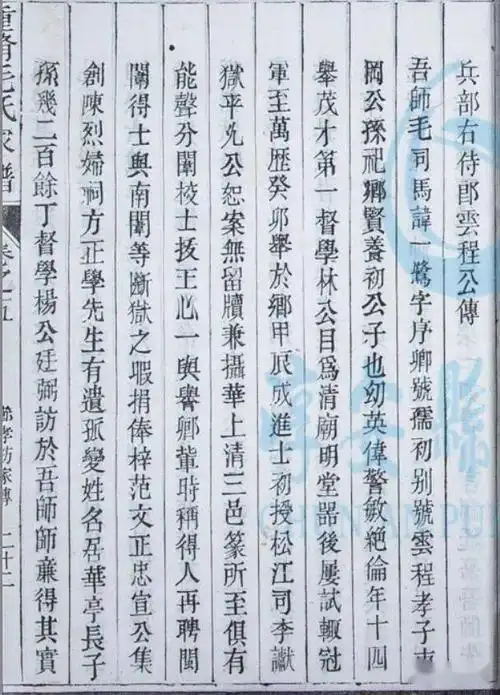 兵部右侍郎雲程公傳
吾師毛司馬諱一鷺字序卿號孺初别號雲程孝子東
岡公孫祀鄉賢養初公子也幼英偉警敏絶倫年十四
舉茂才第一督學林公目爲清廟明堂器後屢試輒冠
軍至萬歷癸卯舉於鄉甲辰成進士初授松江司李讞
獄平允公恕案無留牘兼攝華上清三邑篆所至俱有
能聲分闈校士拔王心一與譽卿輩時稱得人再聘閩
闈得士與南闈等斷獄之暇捐俸梓范文正忠宣公集
創陳烈婦祠方正學先生有遺孤變姓名居華亭長子
孫幾二百餘丁督學楊公廷弼訪於吾師師亷得其實
重脩毛氏家譜
卷之五
節孝坊家傳
二十二